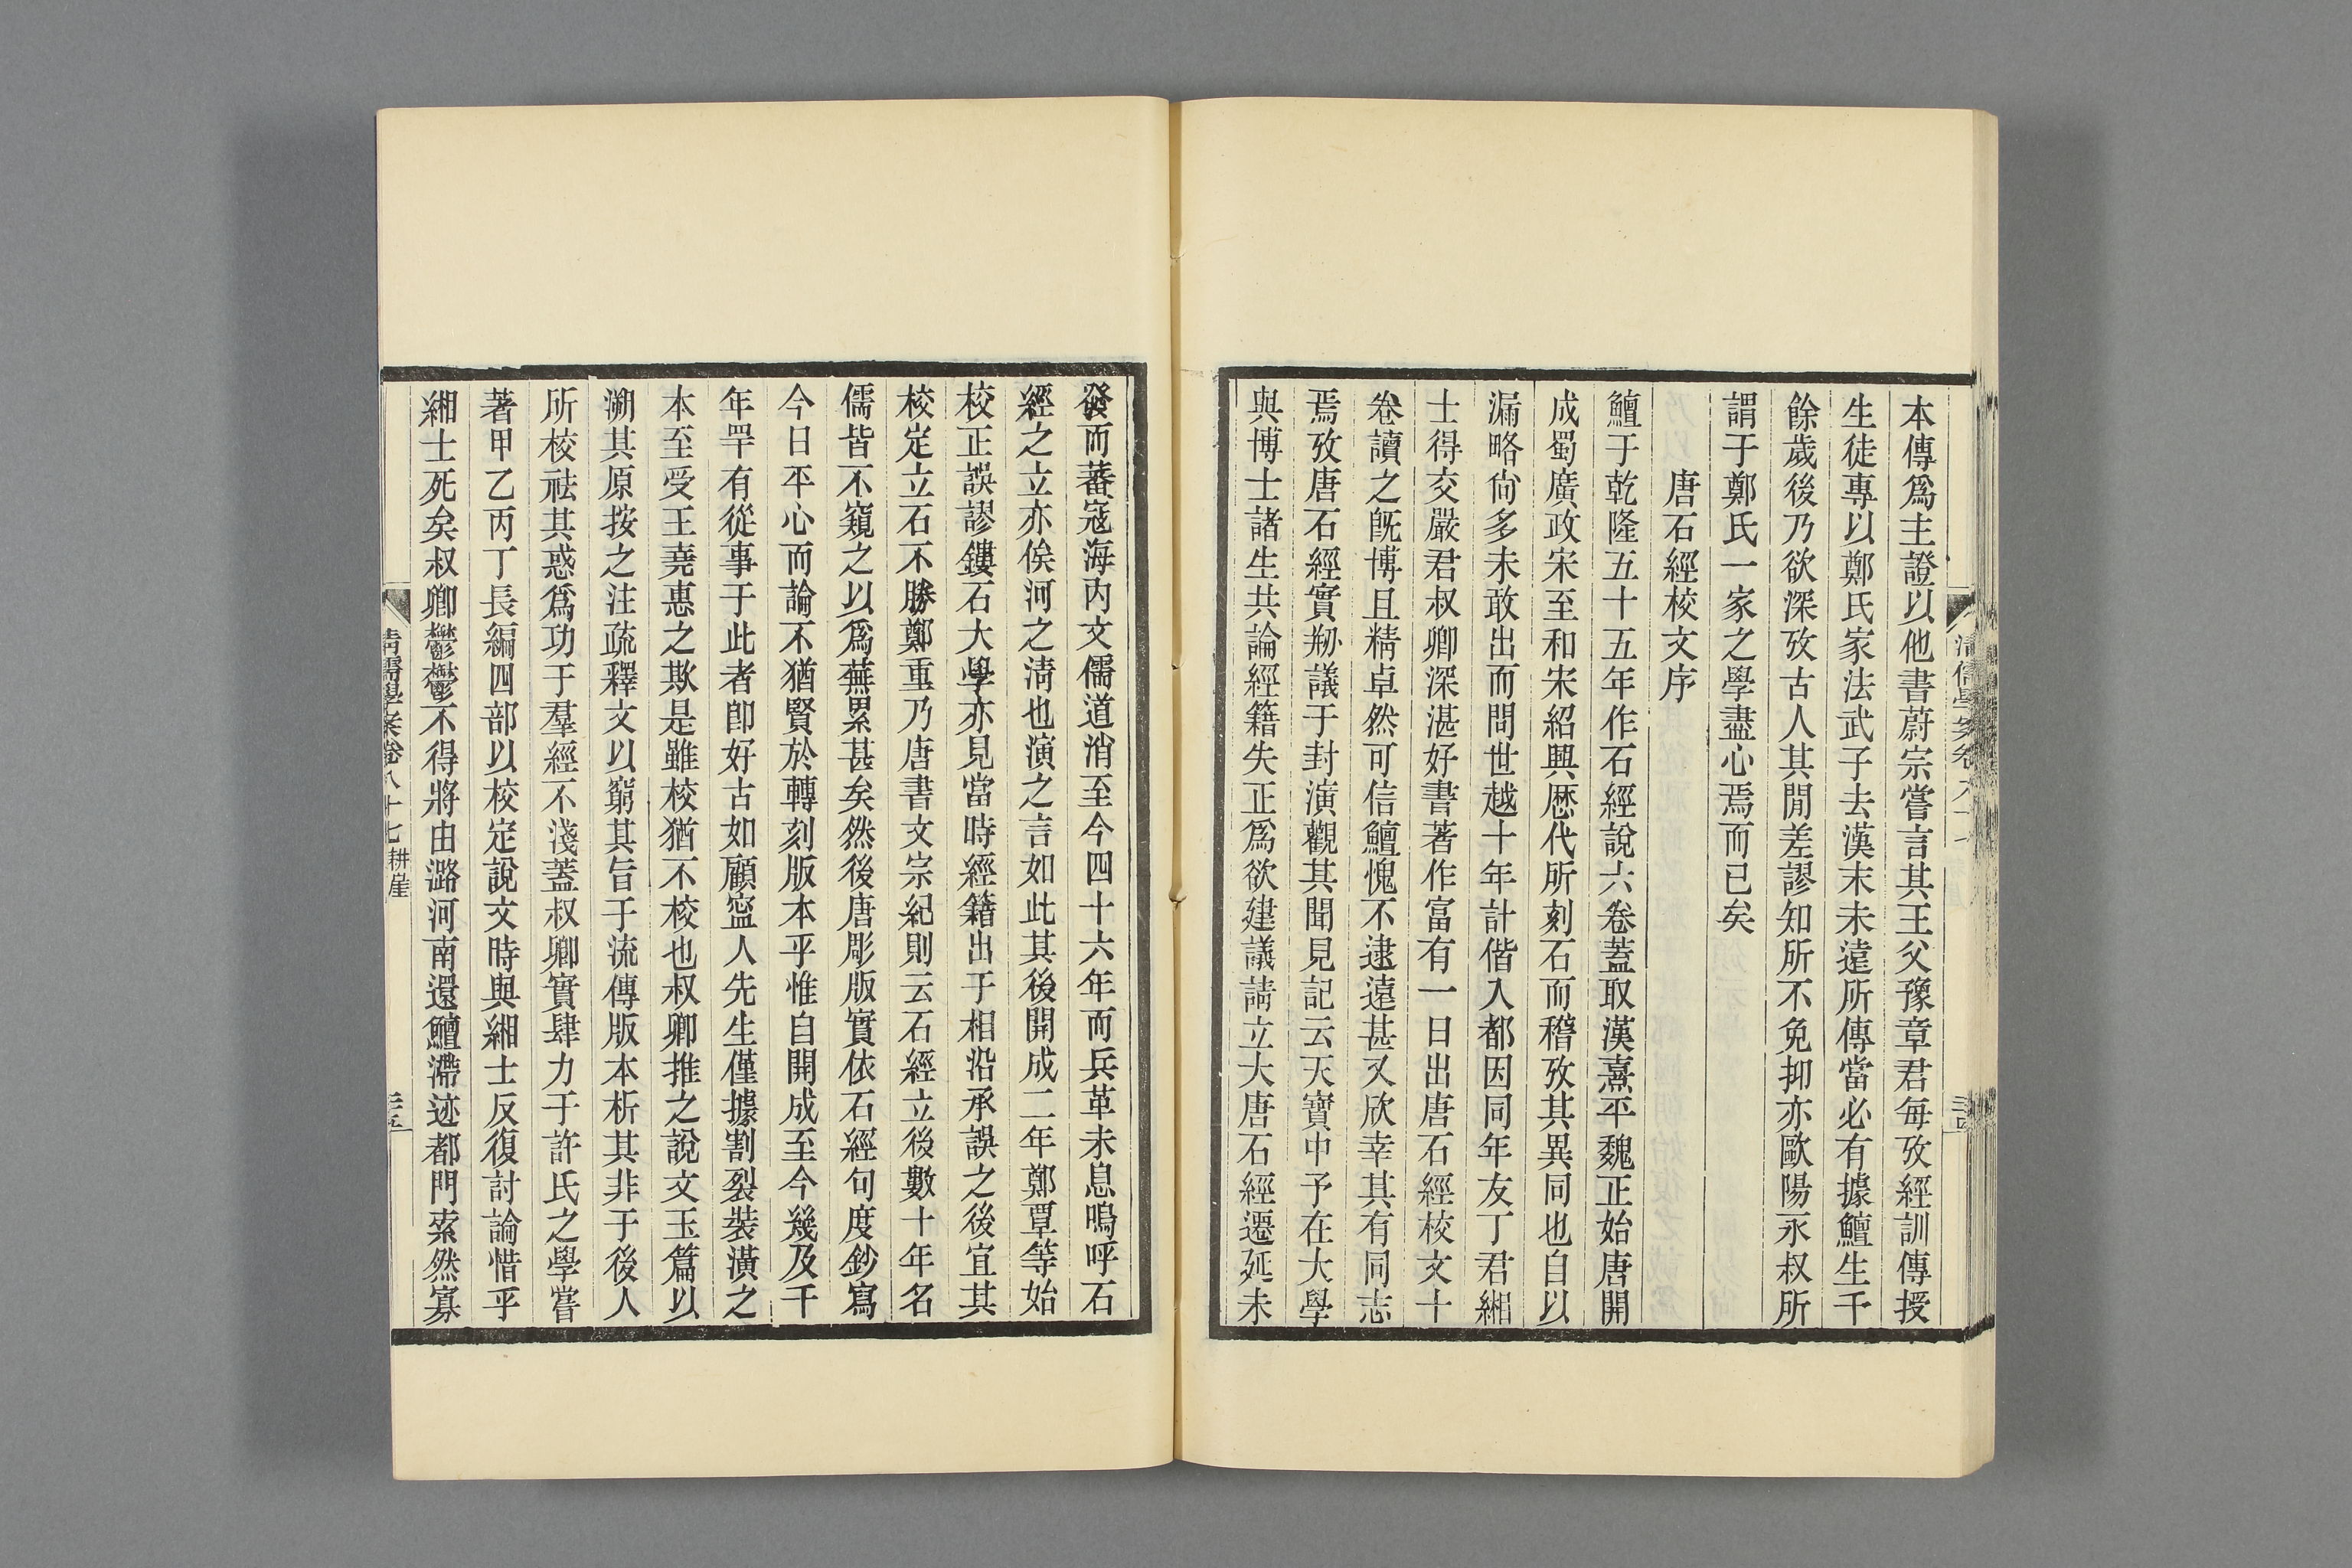 本傳爲主證以他書蔚宗嘗言其王父豫章君每攷經訓傳授
生徒專以鄭氏家法武子去漢末未遠所傳當必有據鱣生千
餘歲後乃欲深攷古人其閒差謬知所不免抑亦歐陽永叔所
謂于鄭氏一家之學盡心焉而已矣
唐石經校文序
鱣于乾隆五十五年作石經說六卷蓋取漢熹平魏正始唐開
成蜀廣政宋至和宋紹興厯代所刻石而稽攷其異同也自以
漏略尙多未敢出而問世越十年計偕入都因同年友丁君緗
士得交嚴君叔卿深湛好書著作富有一日出唐石經校文十
卷讀之旣博且精卓然可信鱣愧不逮遠甚又欣幸其有同志
焉攷唐石經實刱議于封演觀其聞見記云天寶中予在大學
與博士諸生共論經籍失正爲欲建議請立大唐石經遷延未
發而蕃寇海內文儒道消至今四十六年而兵革未息嗚呼石
經之立亦俟河之淸也演之言如此其後開成二年鄭覃等始
校正誤謬鏤石大學亦見當時經籍出于相沿承誤之後宜其
校定立石不勝鄭重乃唐書文宗紀則云石經立後數十年名
儒皆不窺之以爲蕪累甚矣然後唐彫版實依石經句度鈔寫
今日平心而論不猶賢於轉刻版本乎惟自開成至今幾及千
年罕有從事于此者卽好古如顧寍人先生僅據割裂裝潢之
本至受王堯惠之欺是雖校猶不校也叔卿推之說文玉篇以
溯其原按之注疏釋文以窮其旨于流傳版本析其非于後人
所校祛其惑爲功于羣經不淺蓋叔卿實肆力于許氏之學嘗
著甲乙丙丁長編四部以校定說文時與緗士反復討論惜乎
緗士死矣叔卿鬱鬱不得將由潞河南還鱣滯迹都門索然寡
清儒學案卷八十七 耕崖
三五